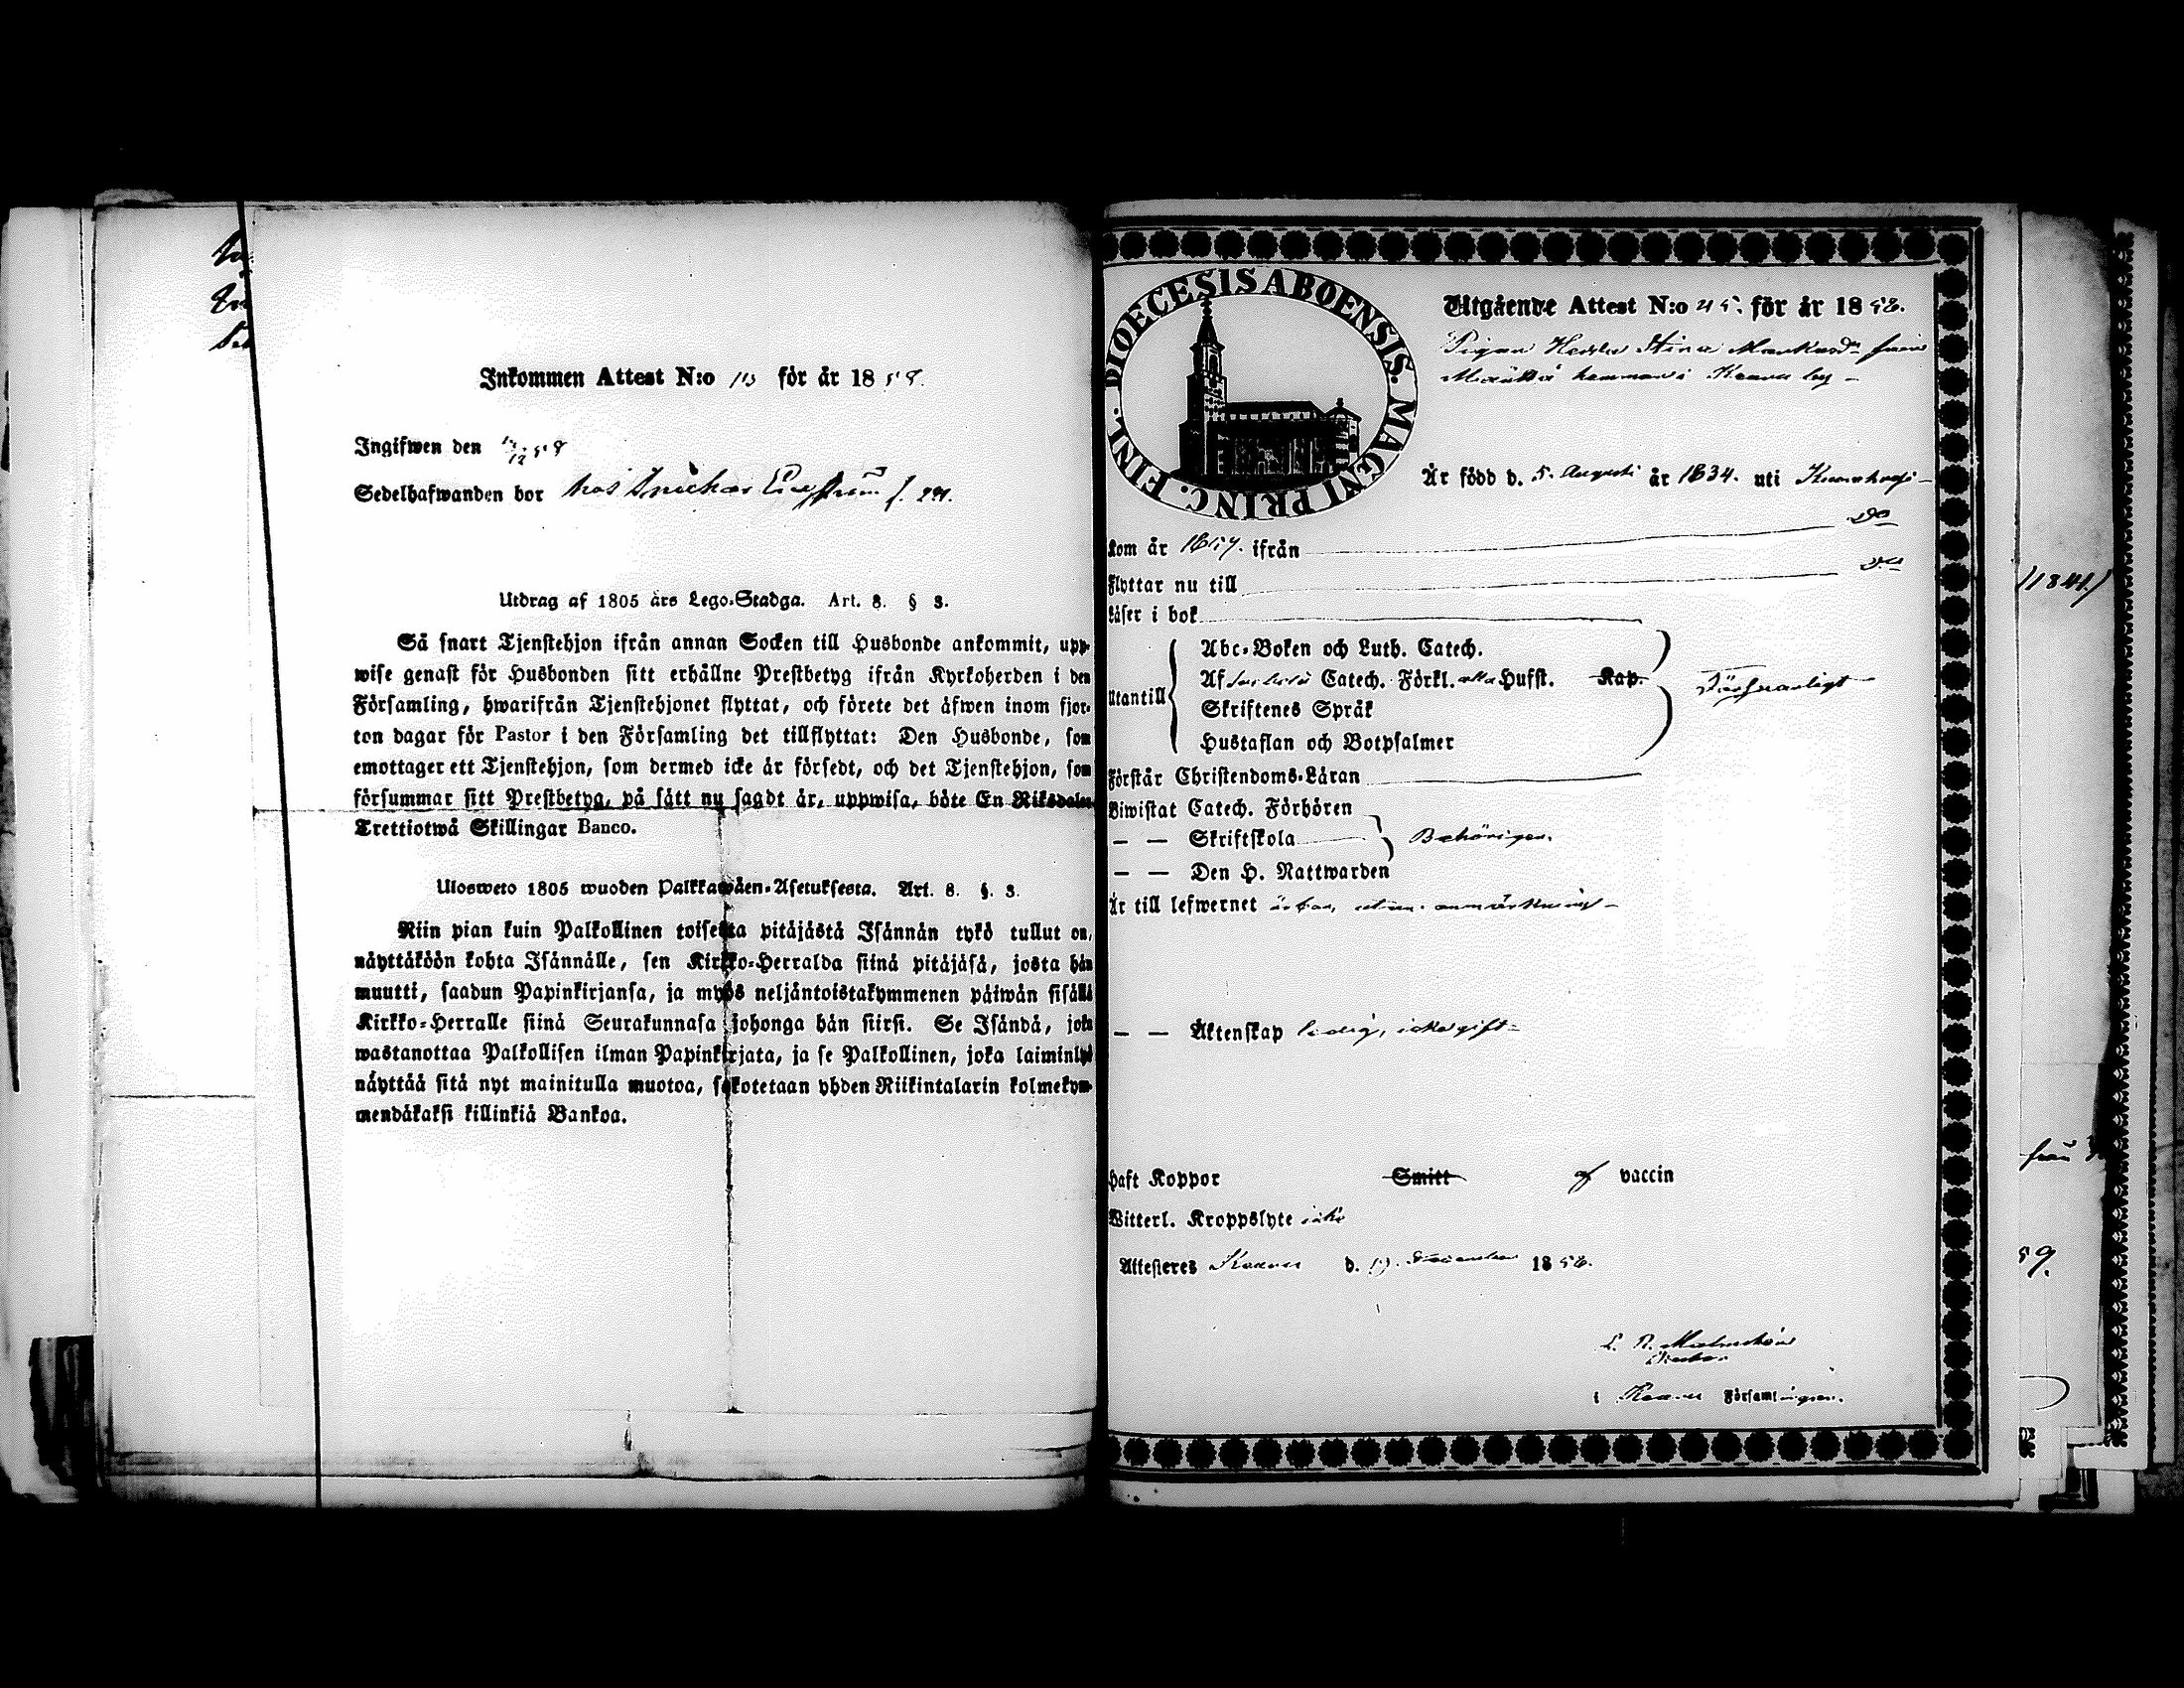 Inkommen Attest N:o 113 för år 1858.
Ingifwen den 12 58
Sedelhafwanden bor hos Snickar f. 291.
Utdrag af 1805 års Lego-Stadga. Art. 8. § 3.
Så snart Tjenstehjon ifrån annan Socken till Husbonde ankommit, upp-
wise genast för Husbonden sitt erhållne Prestbetyg ifrån Kyrkoherden i den
Församling, hwarifrån Tjenstehjonet flyttat, och förete det äfwen inom fjor-
ton dagar för Pastor i den Församling det tillflyttat: Den Husbonde, som
emottager ett Tjenstehjon, som dermed icke är försedt, och det Tjenstehjon, som
försummar sitt Prestbetyg, på sätt nu sagdt är, uppwisa, böte En Riksdaler
Trettiotwå Skillingar Banco.
Ulosweto 1805 wuoden Palkkawäen-Asetuksesta. Art. 8. §. 3.
Niin pian kuin Palkollinen toisesta pitäjästä Isännän tykö tullut on,
näyttäköön kohta Isännälle, sen Kirkko-Herralda siinä pitäjäsä, josta hän
muutti, saadun Papinkirjansa, ja myös neljäntoistakymmenen päiwän sisällä
Kirkko-Herralle siinä Seurakunnasa johonga hän siirsi. Se Isändä, joka
wastanottaa Palkollisen ilman Papinkirjata, ja se Palkollinen, joka laiminlyö
näyttää sitä nyt mainitulla muotoa, sakotetaan yhden Riikintalarin kolmekym-
mendäkaksi killinkiä Bankoa.
DIOECESIS ABOENSIS. MAGNI PRINC. FINL.
Utgående Attest N:o 45. för år 1858.
Pigan Hedda Stina Markusdr från
hemman i by
Är född d. 5. Augusti år 1834. uti
Kom år 1857. ifrån Do
Flyttar nu till Do
Läser i bok
Abc-Boken och Luth. Catech.
Utantill
Af Catech. Förkl. Hufst. Kap.
Skriftenes Språk
Hustaflan och Botpsalmer
Försvarligt
Förstår Christendoms-Läran
Biwistat Catech. Förhören
— — Skriftskola Behörigen.
— — Den H. Nattwarden
Är till lefwernet ärbar, utan anmärkning
— — Äktenskap ledig, icke gift
Haft Koppor Smitt af vaccin
Witterl. Kroppslyte icke
Attesteres d. 1858.
i Församlingen.
1841)
från
59.